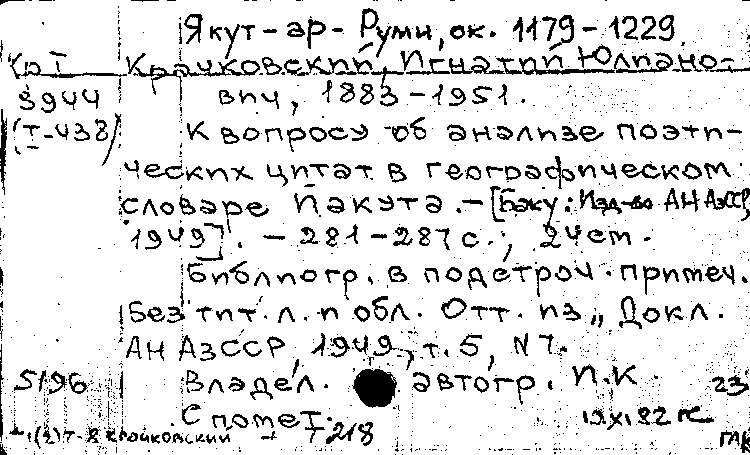 Якут-ар-Руми, ок. 1179-1229
Кр I Крачковский, Игнатий Юлиано-
3944 вич, 1883-1951.
(Т-438) К вопросу об анализе поэти-
ческих цитат в географическом
словаре Йакута. - [Баку: Изд-во АН АзССР,
1949]. - 281-287 с.; 24 cm.
Библиогр. в подстроч. примеч.
Без тит. л. и обл. Отт. из „Докл.
АН АзССР, 1949, т. 5, N 7.
5196 Владел. автогр. И.К. 23
С помет.
Крачковский 1218